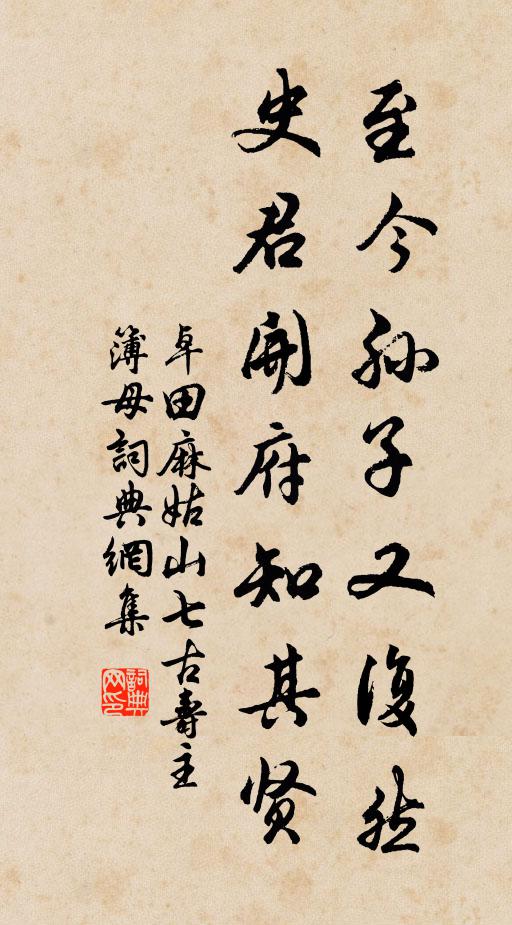 至今孙子又復然
史君開府知其贤
卓田麻姑山七古壽主
簿母詞典網集
詞典
网印